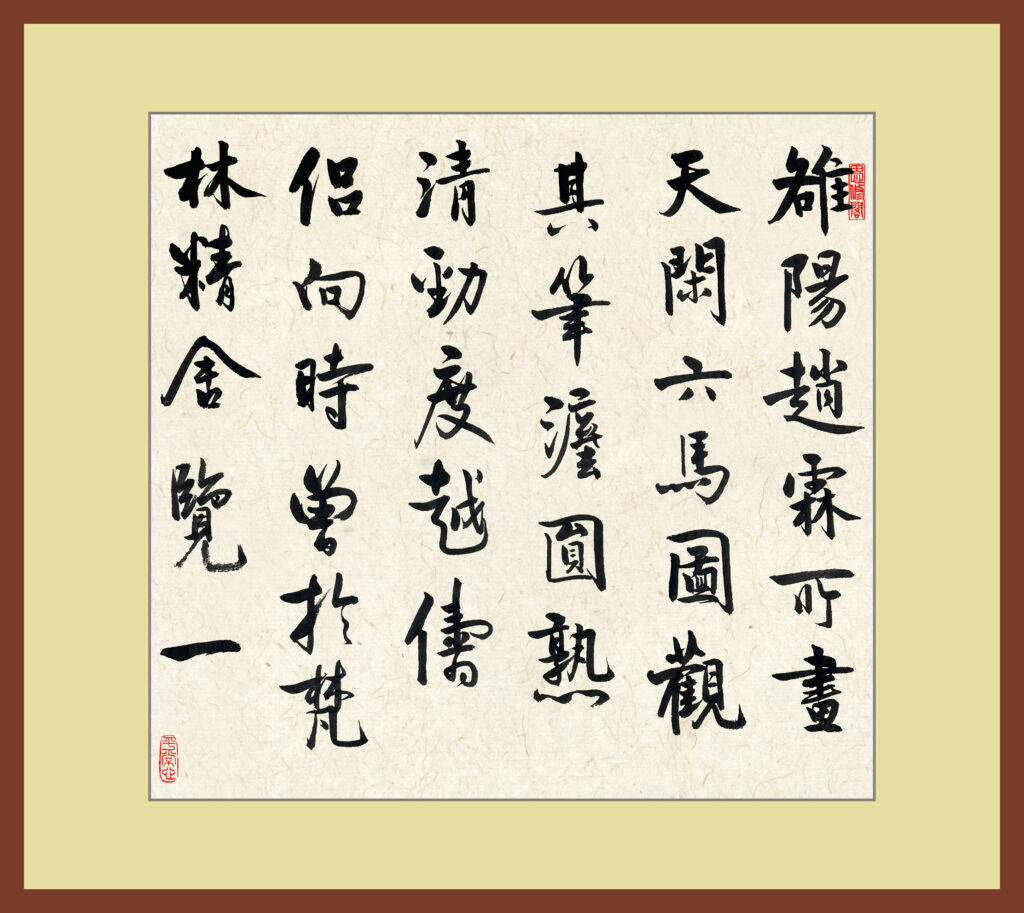 雒陽趙霖所畫
天閑六馬圖觀
其筆圓熟
清勁度越儔
侶向時曾於梵
林精舍覽一
平常心